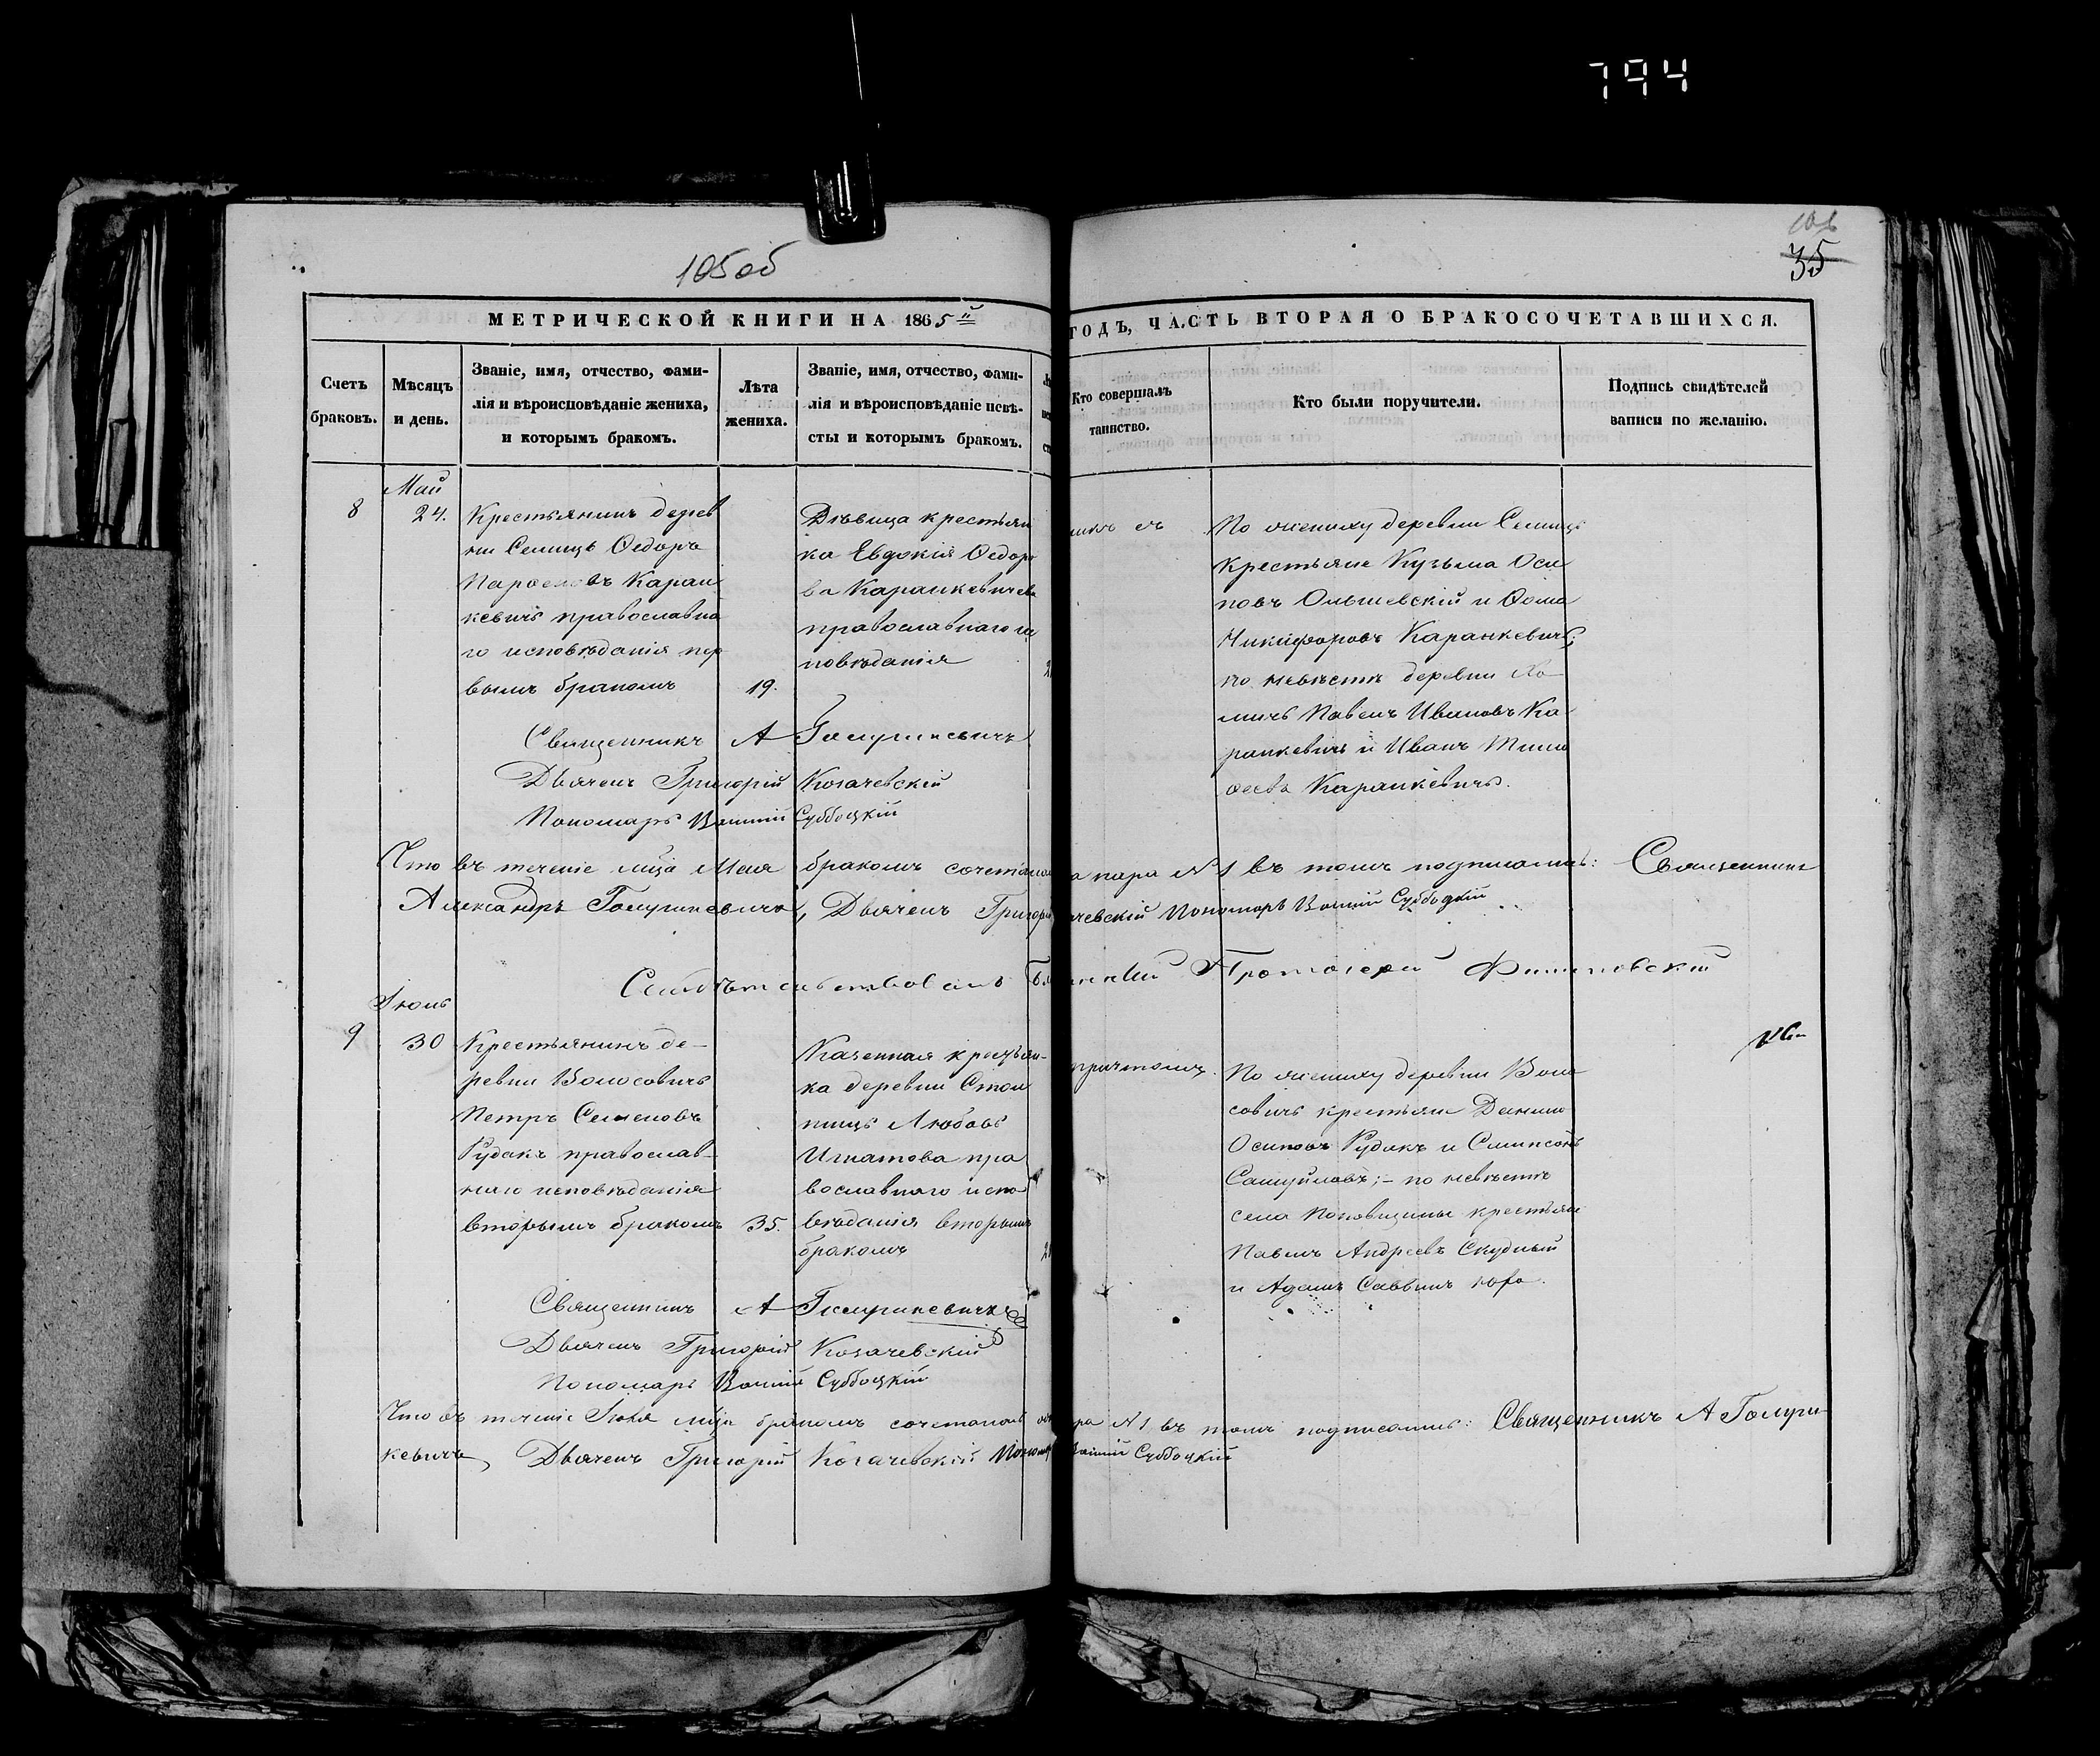 794
105 об
106
35
МЕТРИЧЕСКОЙ КНИГИ НА 1865й
ГОДЪ, ЧАСТЬ ВТОРАЯ О БРАКОСОЧЕТАВШИХСЯ.
Счетъ
браковъ.
Мѣсяцъ
и день.
Званіе, имя, отчество, фами-
лія и вѣроисповѣданіе жениха,
и которымъ бракомъ.
Лѣта
жениха.
Званіе, имя, отчество, фами-
лія и вѣроисповѣданіе невѣ-
сты и которымъ бракомъ.
Кто совершалъ
таинство.
Кто были поручители.
Подпись свидѣтелей
записи по желанію.
Май
8
24.
Крестьянинъ дерев
ни Селищъ Ѳедоръ
Каран
кевичъ православна
го исповѣданія пер
вымъ бракомъ
19.
Дѣвица крестьян
ка Евдокія Ѳедоро
ва Каранкевичева
православнаго ис
повѣданія
По жениху деревни Селищъ
крестьяне Кузьма Оси
повъ Ольшевскій и Ѳома
Никифоровъ Каранкевичъ;
по невѣстѣ деревни Хо
мичъ Павелъ Ивановъ Ка
ранкевичъ и Иванъ Тимо
ѳеевъ Каранкевичъ.
Священникъ А Голушкевичъ
Дьячекъ Григорій Козачевскій
Пономарь Суббоцкій
Что въ теченіе мца Мая бракомъ сочеталась
пара №1 въ томъ подписались: Священникъ
Александръ Голушкевичъ, Дьячекъ Григорій
чевскій Пономарь Суббоцкій
Свидѣтельствовалъ
Протоіерей
Іюнь
9
30
Крестьянинъ де-
ревни Волосовичъ
Петръ Семеновъ
Рудакъ православ-
наго исповѣданія
вторымъ бракомъ
35.
Казенная крестьян-
ка деревни Стол
пищъ Любовь
Игнатова пра
вославнаго испо
вѣданія вторымъ
бракомъ
причтомъ.
По жениху деревни Воло
совичъ крестьяне Данило
Осиповъ Рудакъ и Сампсонъ
Самуйловъ; - по невѣстѣ
села Поповщины крестьяне
Павелъ Андреевъ Скудный
и Адамъ Саввинъ
Священникъ А Голушкевичъ
Дьячекъ Григорій Козачевскій
Пономарь Суббоцкій
Что въ теченіе Іюня мца бракомъ сочеталась
ра №1. въ томъ подписались: Священникъ А Голуш-
кевичъ, Дьячекъ Григорій Козачевскій
Суббоцкій